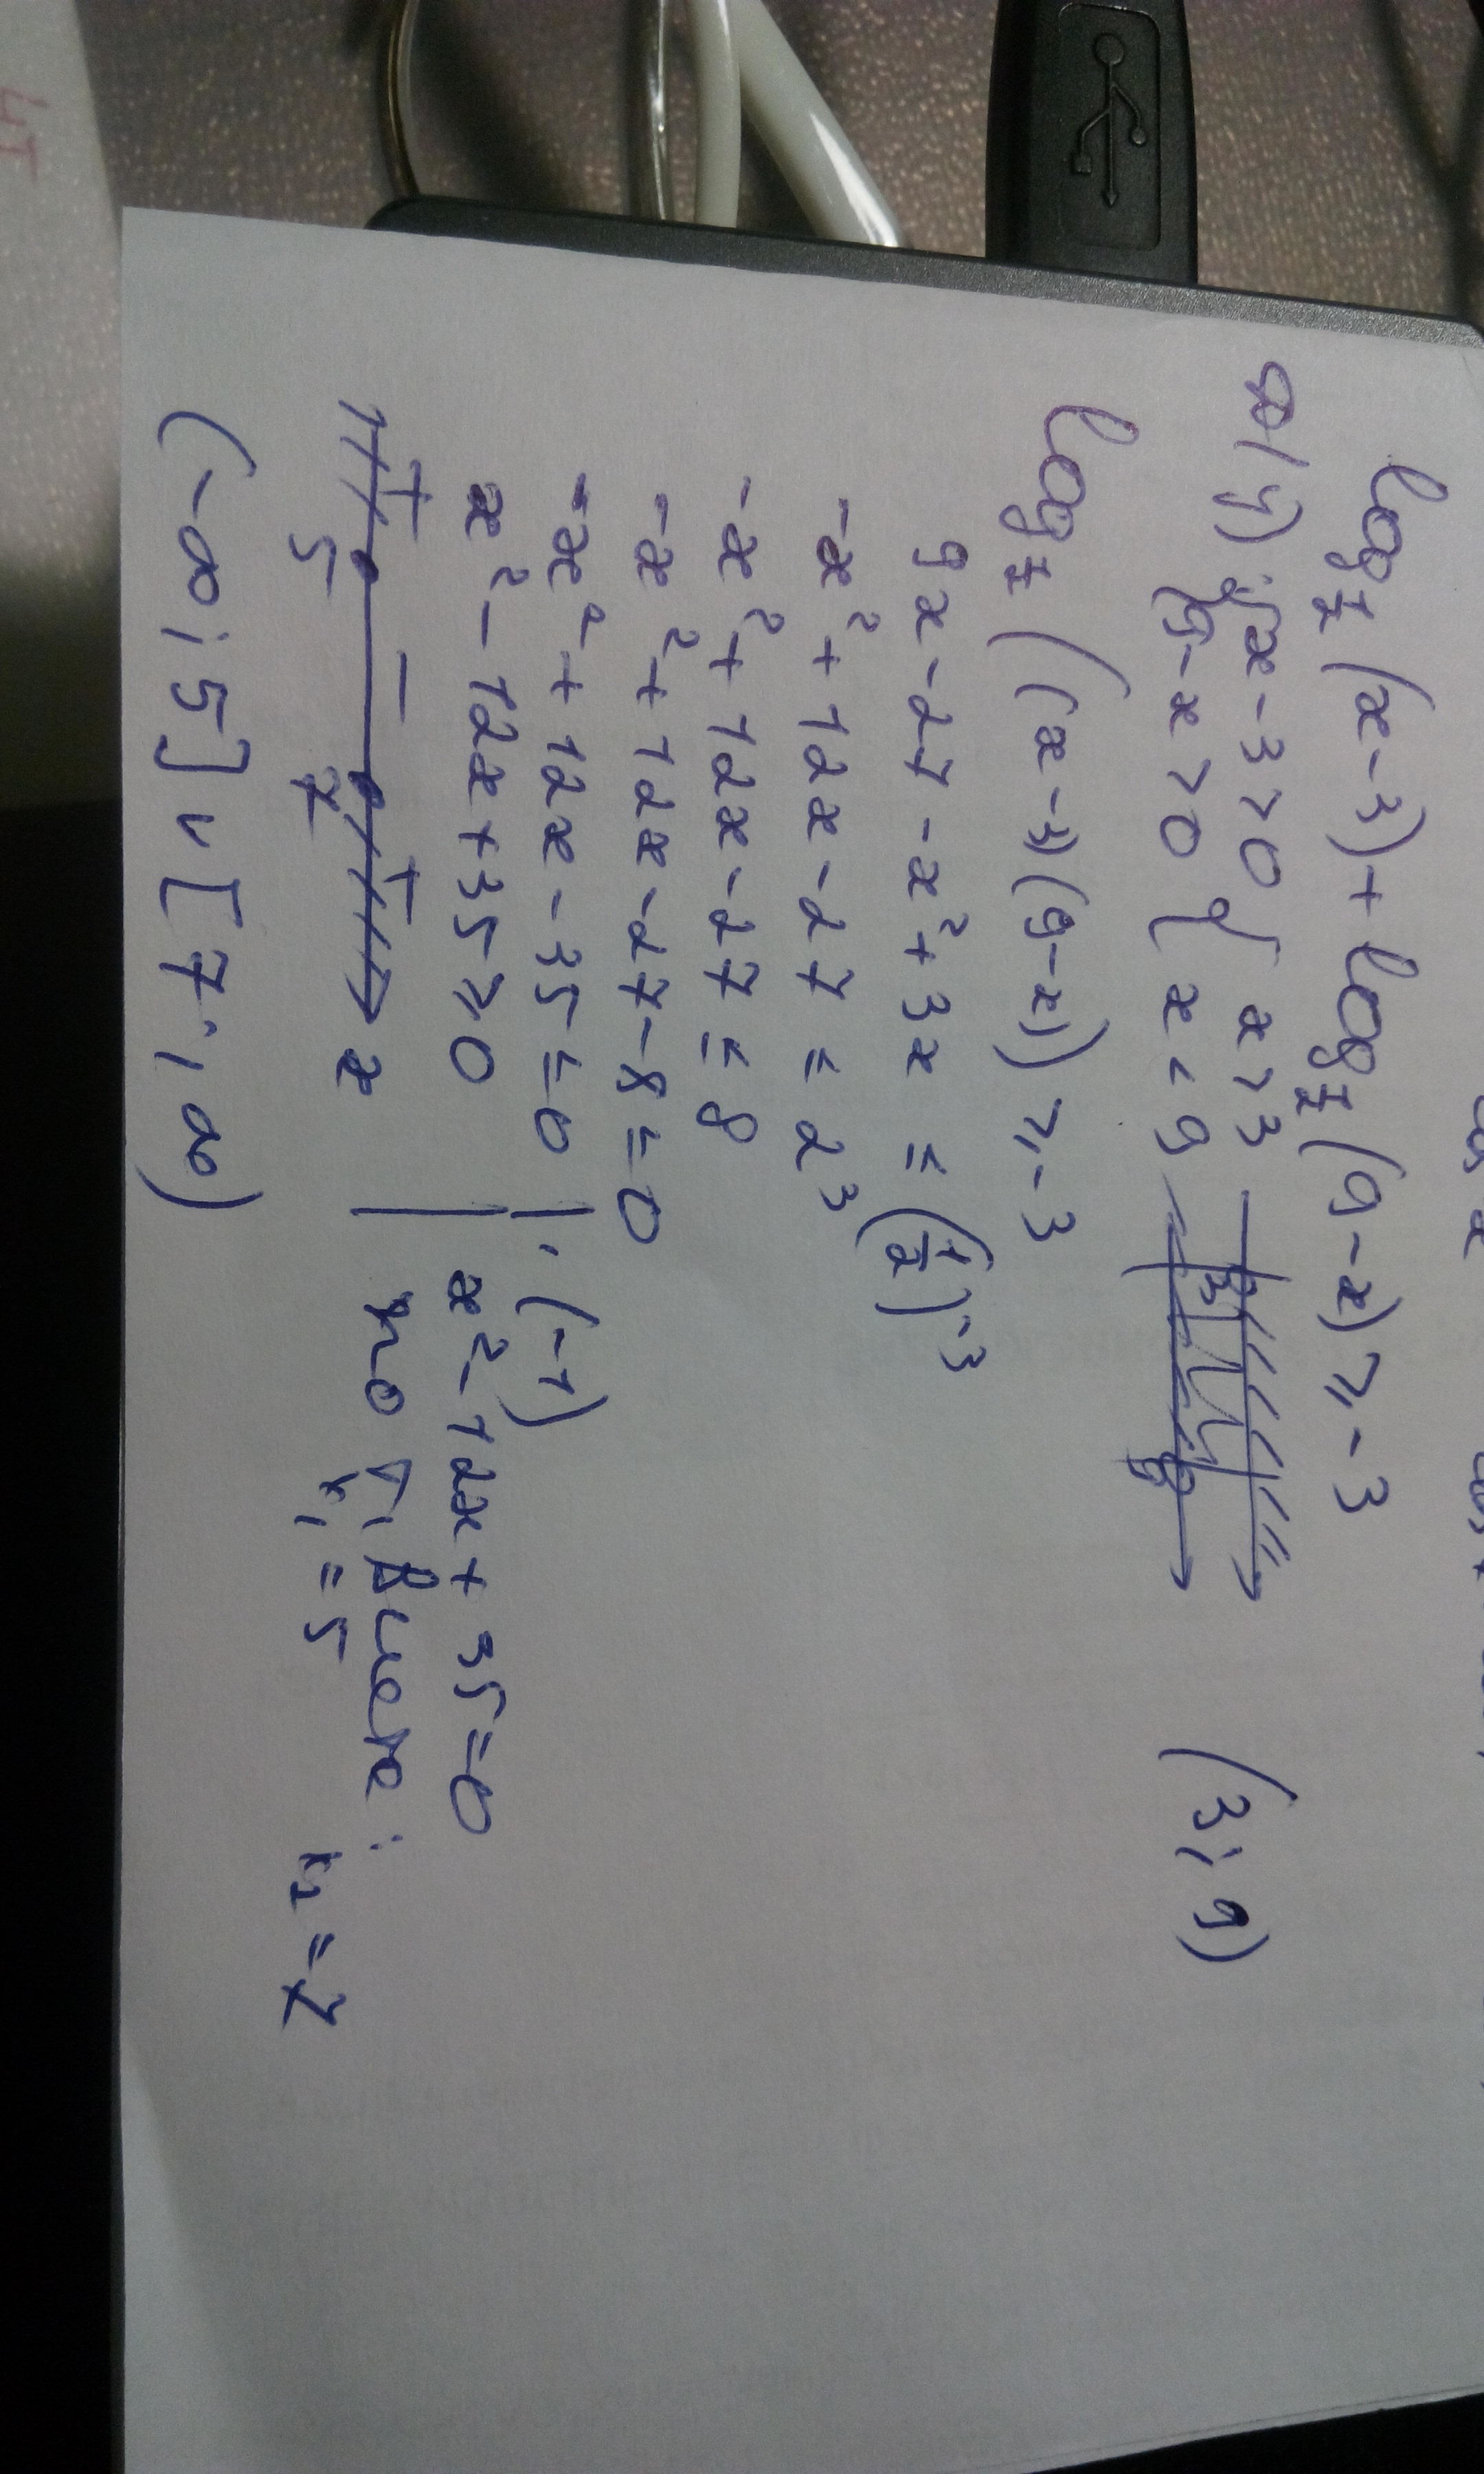 log½(x-3)+log½(9-x)≥-3
ОДЗ: {x-3>0 {x>3
{9-x>0 {x<9
3 9
(3; 9)
log½((x-3)(9-x))≥-3
9x-27-x²+3x≤(1/2)⁻³
-x²+12x-27≤2³
-x²+12x-27≤8
-x²+12x-27-8=0
-x²+12x-35=0 |·(-1)
x²-12x+35≥0
x²-12x+35=0
по т. Виета:
x₁=5 x₂=7
+ - +
5 7 x
(-∞; 5]∪[7; ∞)